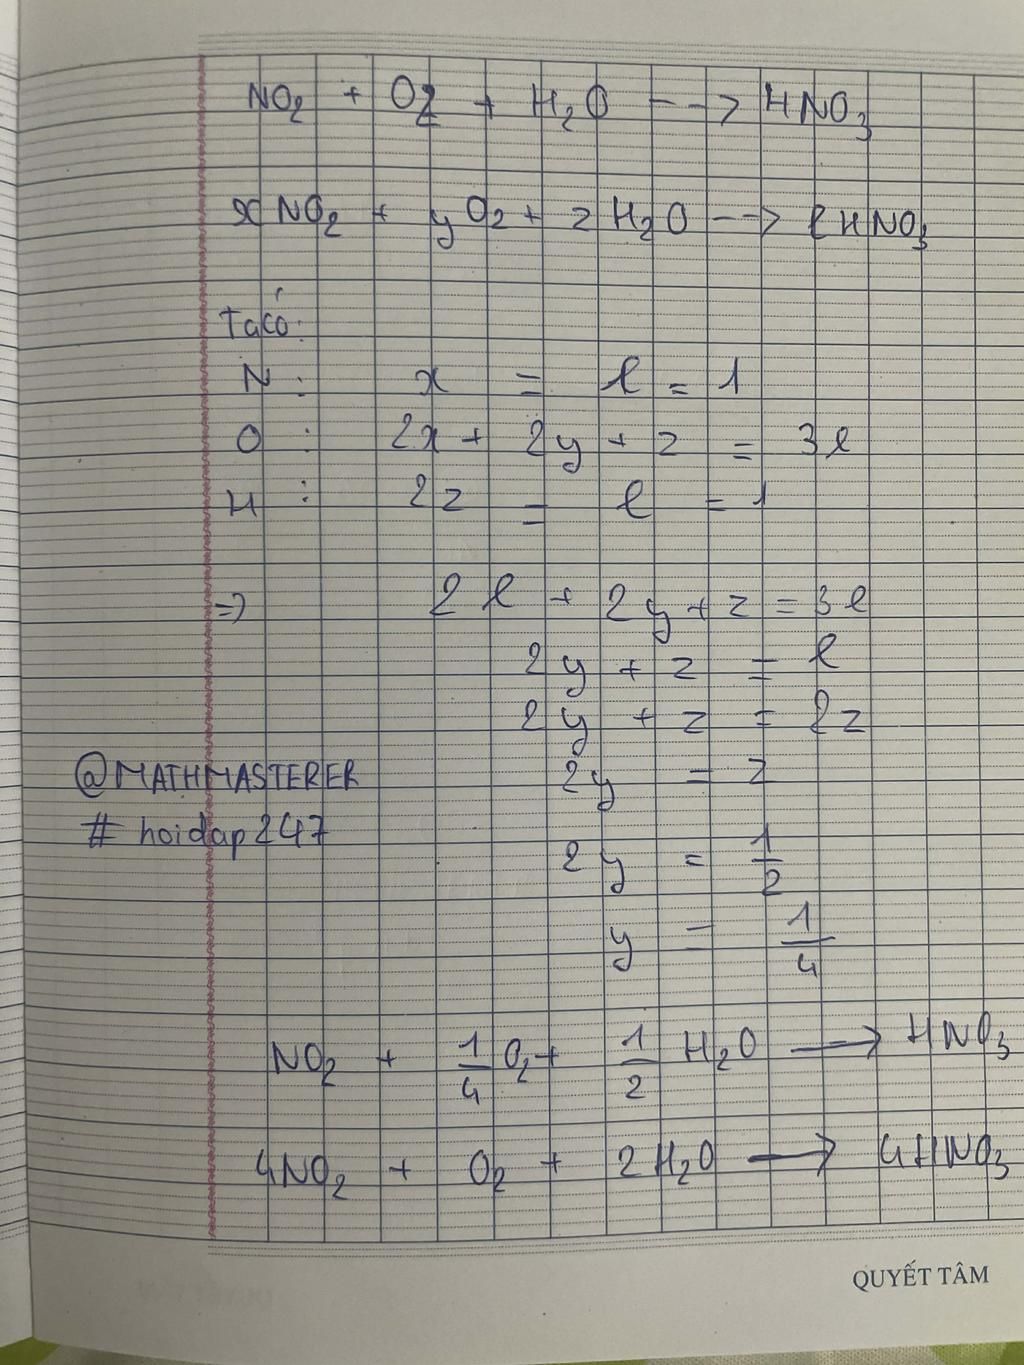 NO₂ + O₂ + H₂O --> HNO₃
xNO₂ + yO₂ + zH₂O --> lHNO₃
Ta có:
N : x = l = 1
O : 2x + 2y + z = 3l
H : 2z = l = 1
=> 2l + 2y + z = 3l
2y + z = l
2y + z = 2z
@MATHMASTERER 2y = z
# hoidap247
2y = 1/2
y = 1/4
NO₂ + 1/4 O₂ + 1/2 H₂O ⟶ HNO₃
4NO₂ + O₂ + 2H₂O ⟶ 4HNO₃
QUYẾT TÂM